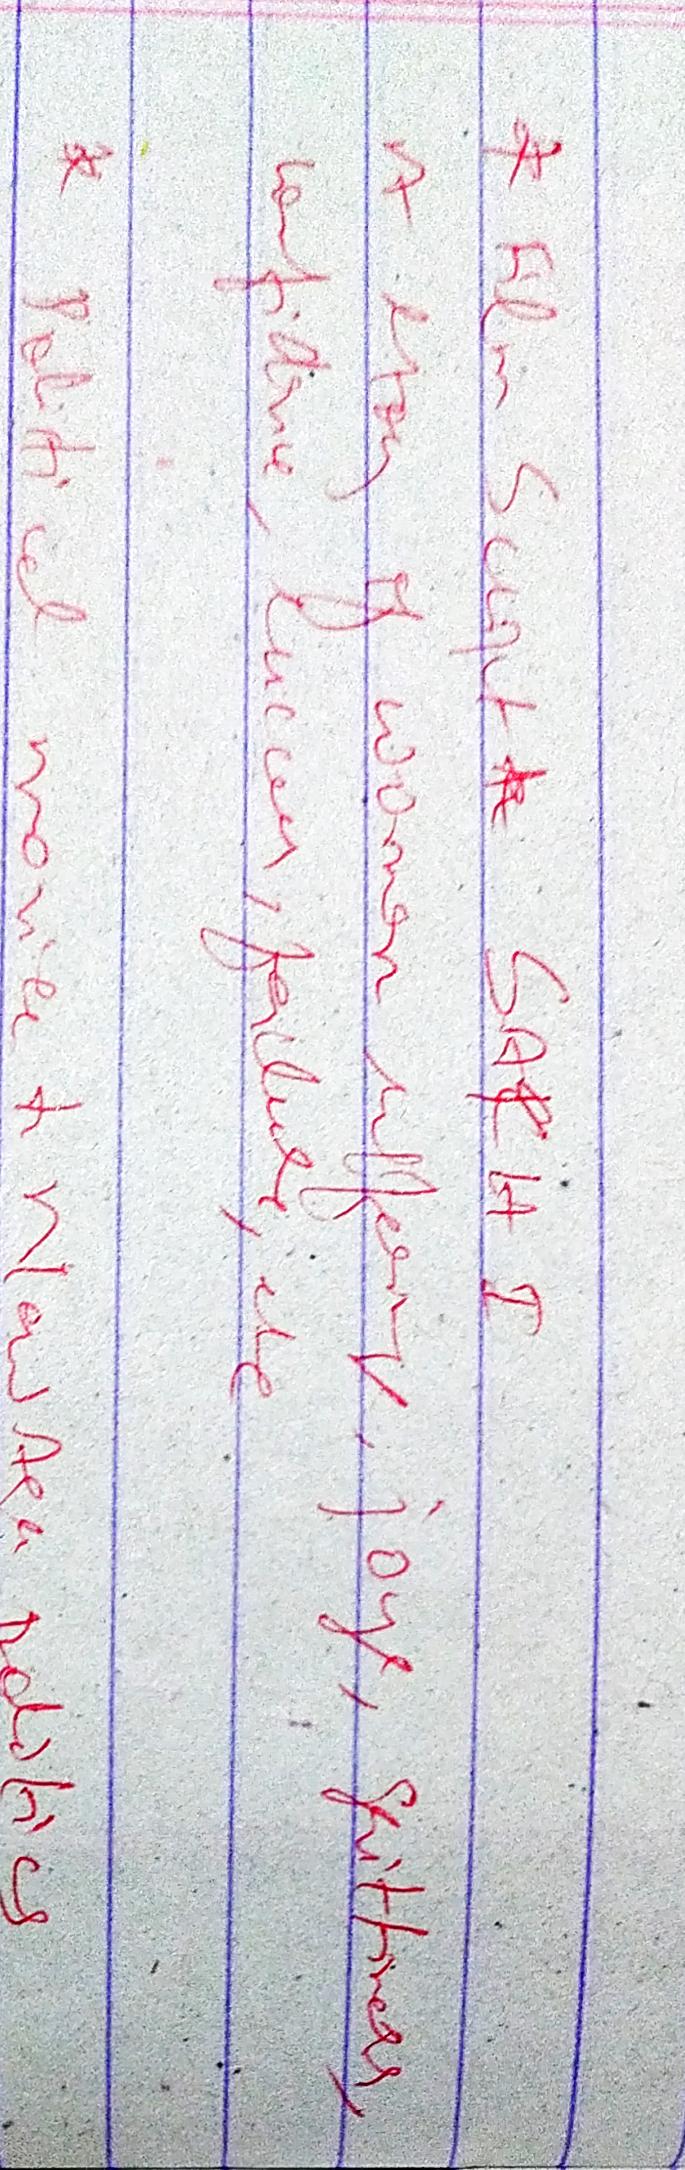 * Film Script * SAKHI
* story of women sufferings, joys, grittiness,
confidence, success, failures, etc
* Political movie +
politics